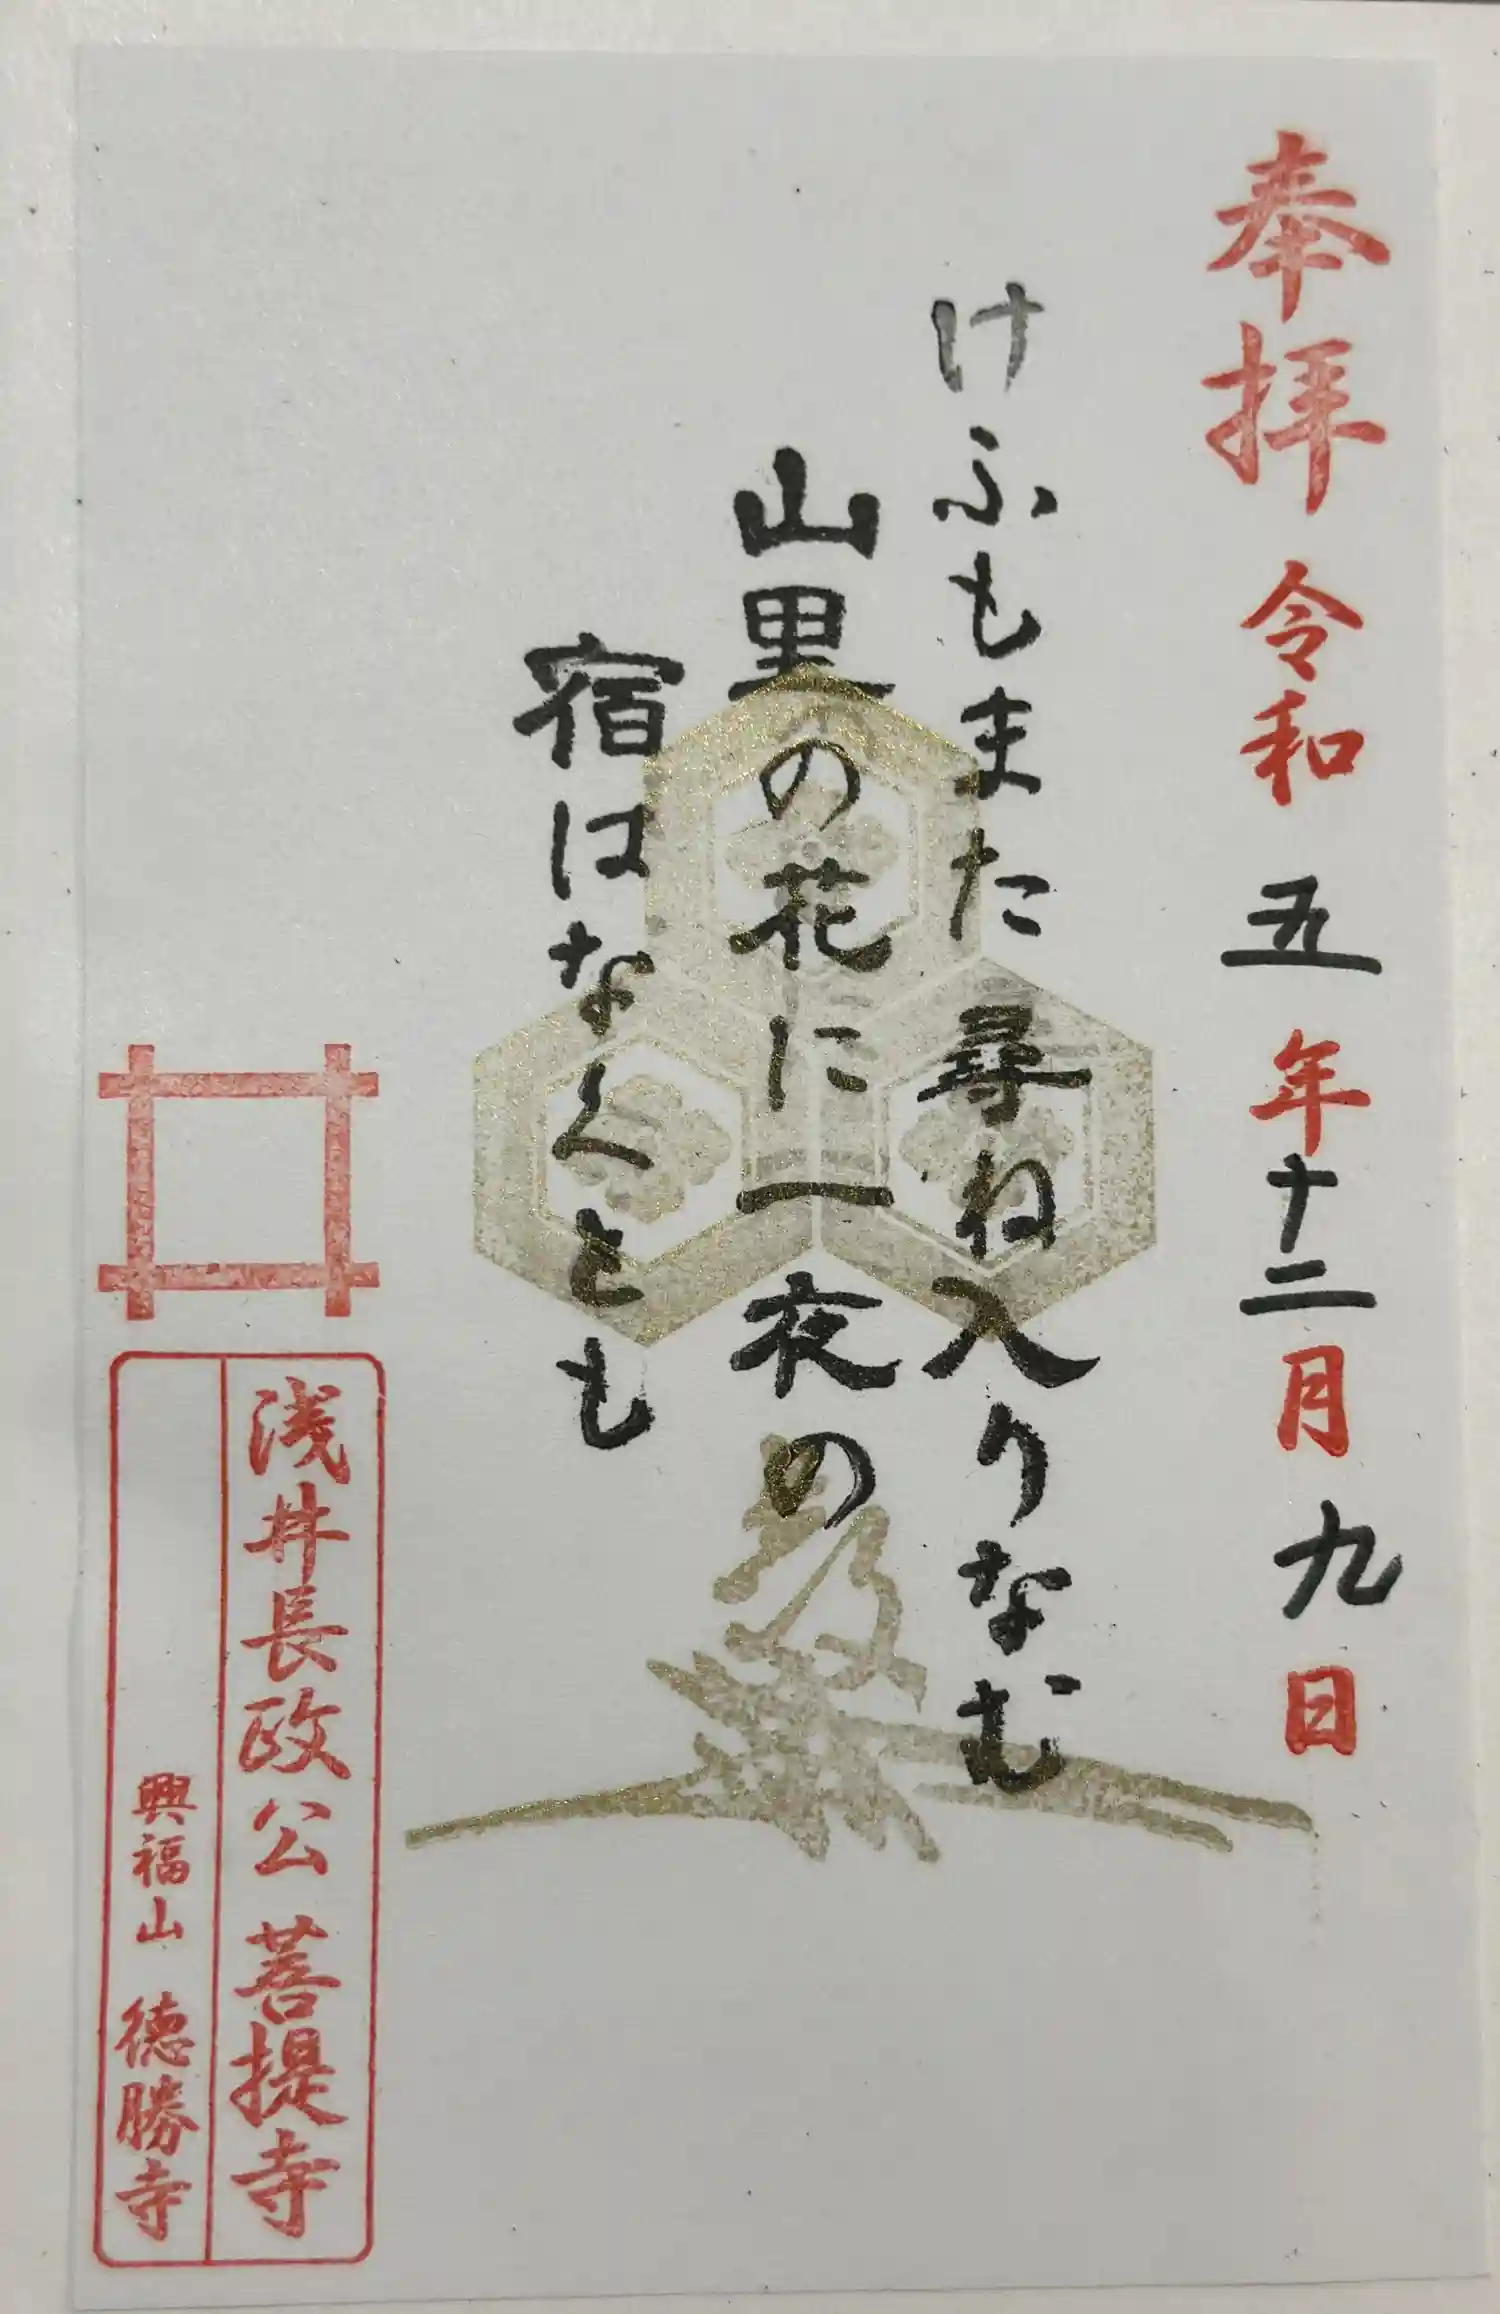 奉拝 令和 五年十二月九日
けふもまた尋ね入りなむ
山里の花に一夜の
宿はなくとも
浅井長政公 菩提寺
興福山 徳勝寺